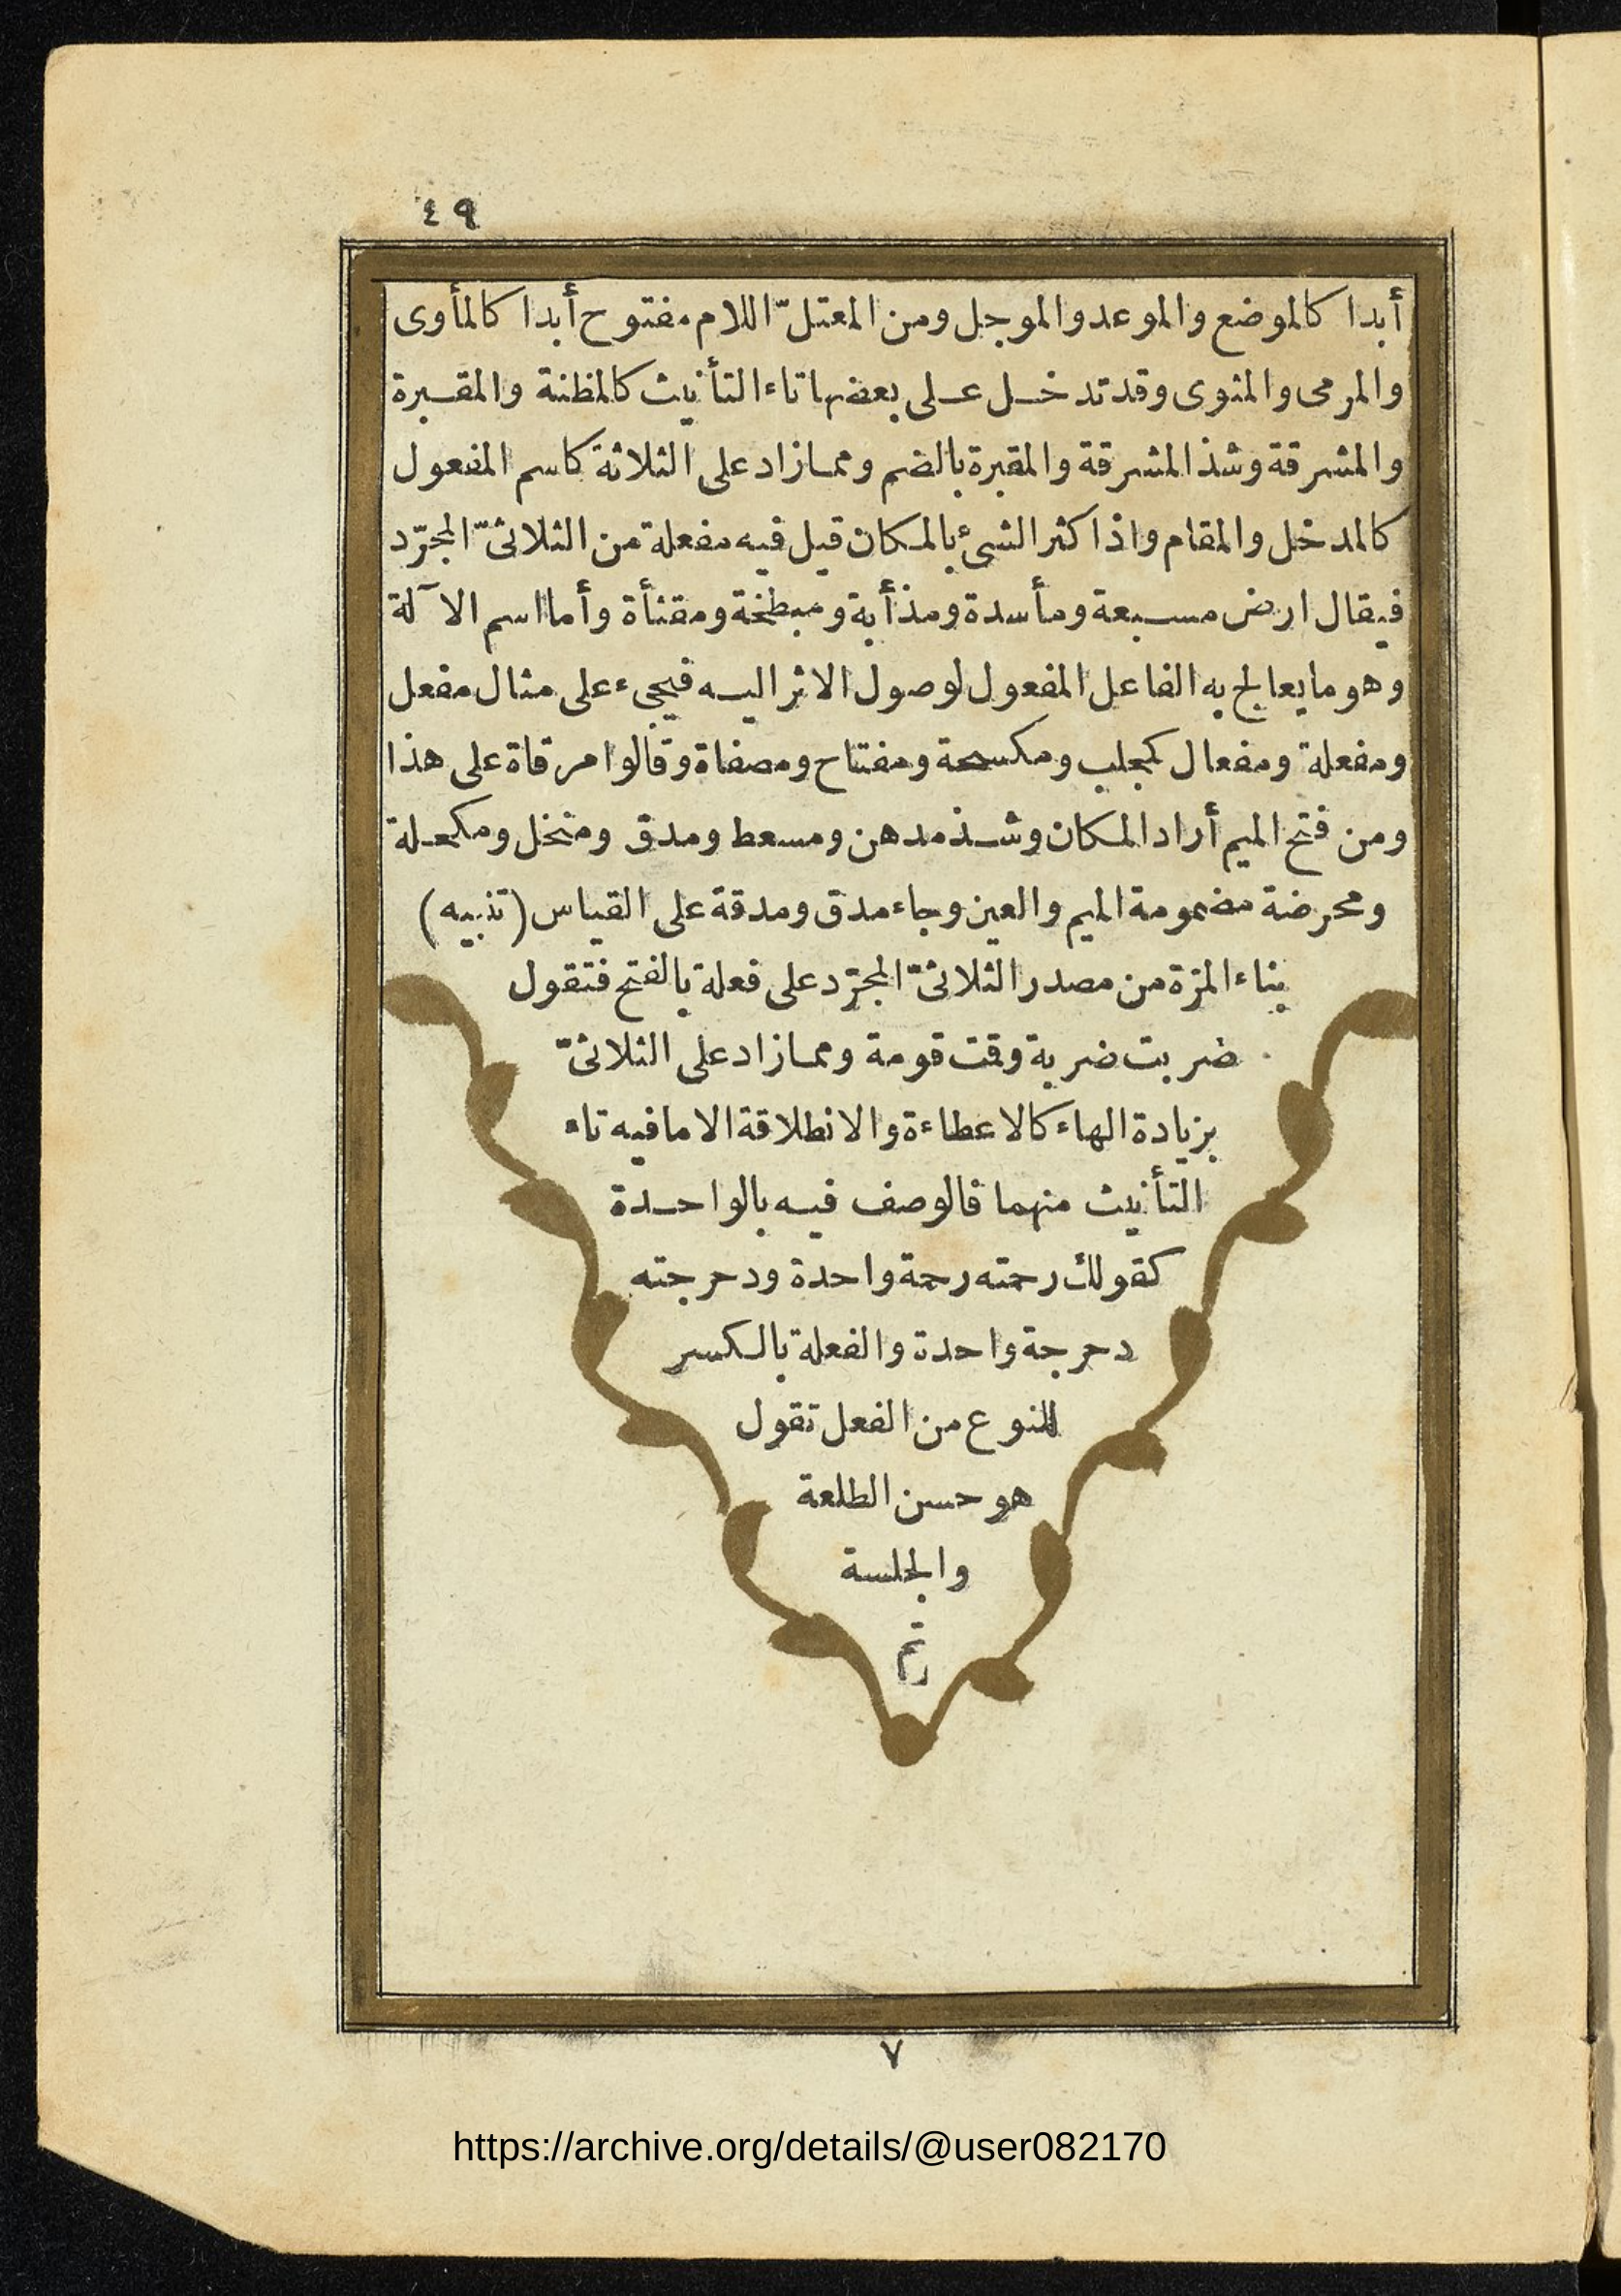 ٤٩
أبدا كالموضع والموعد والموجل ومن المعتلّ اللام مفتوح أبدا كالمأوى
والمرمى والمثوى وقد تدخل على بعضها تاء التأنيث كالمظنة والمقبرة
والمشرقة وشذ المشرقة والمقبرة بالضم ومما زاد على الثلاثة كاسم المفعول
كالمدخل والمقام واذا كثر الشئ بالمكان قيل فيه مفعلة من الثلاثىّ المجرّد
فيقال ارض مسبعة ومأسدة ومذأبة ومبطخة ومقثأة وأما اسم الآلة
وهو ما يعالج به الفاعل المفعول لوصول الاثر اليه فيجىء على مثال مفعل
ومفعلة ومفعال كمجلب ومكسحة ومفتاح ومصفاة وقالوا مرقاة على هذا
ومن فتح الميم أراد المكان وشذ مدهن ومسعط ومدق ومنخل ومكحلة
ومحرضة مضمومة الميم والعين وجاء مدق ومدقة على القياس (تنبيه)
بناء المرّة من مصدر الثلاثىّ المجرّد على فعلة بالفتح فتقول
ضربت ضربة وقمت قومة ومما زاد على الثلاثىّ
بزيادة الهاء كالاعطاءة والانطلاقة الا ما فيه تاء
التأنيث منهما فالوصف فيه بالواحدة
كقولك رحمته رحمة واحدة ودحرجته
دحرجة واحدة والفعلة بالكسر
للنوع من الفعل تقول
هو حسن الطلعة
والجلسة
تم
٧
https://archive.org/details/@user082170